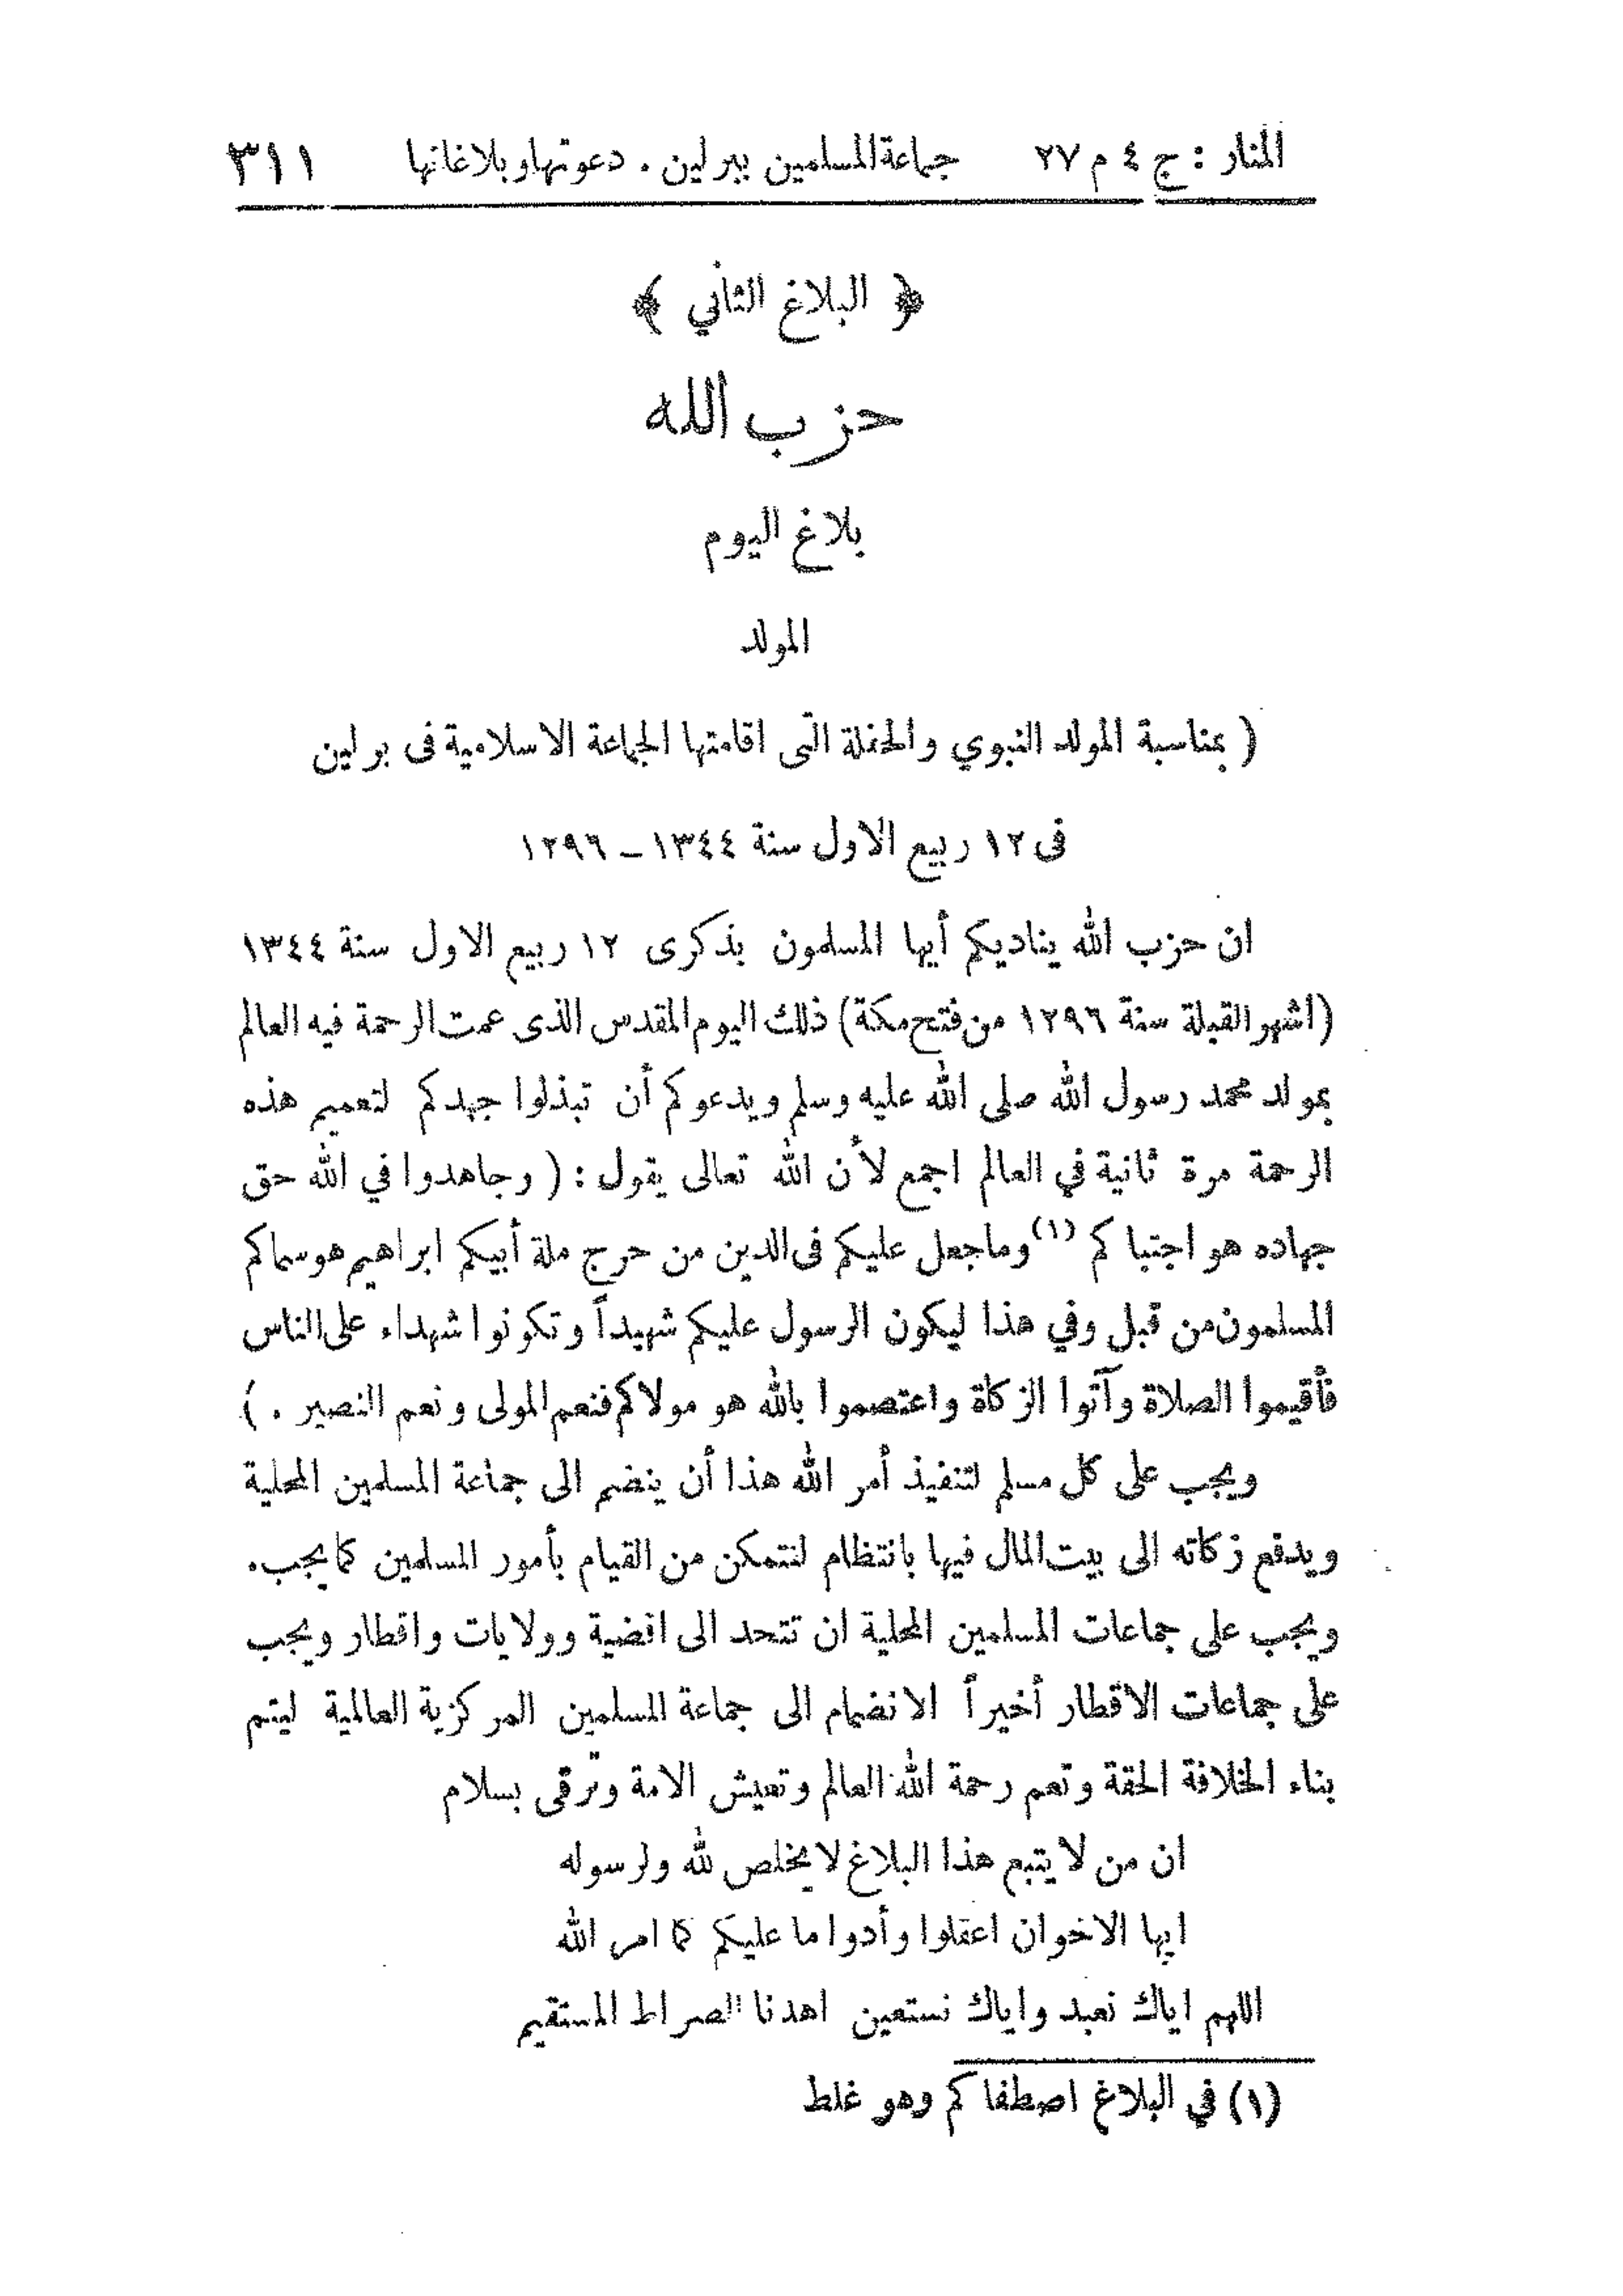 المنار : ج ٤ م ٢٧ جماعة المسلمين ببرلين . دعوتها وبلاغاتها ٣١١
﴿ البلاغ الثاني ﴾
حزب الله
بلاغ اليوم
المولد
( بمناسبة المولد النبوي والحفلة التى اقامتها الجماعة الاسلامية فى برلين
فى ١٢ ربيع الاول سنة ١٣٤٤ – ١٢٩٦
ان حزب الله يناديكم أيها المسلمون بذكرى ١٢ ربيع الاول سنة ١٣٤٤
(اشهر القبلة سنة ١٢٩٦ من فتح مكة) ذلك اليوم المقدس الذى عمت الرحمة فيه العالم
بمولد محمد رسول الله صلى الله عليه وسلم ويدعوكم أن تبذلوا جهدكم لتعميم هذه
الرحمة مرة ثانية في العالم اجمع لأن الله تعالى يقول : ( وجاهدوا في الله حق
جهاده هو اجتباكم (١) وما جعل عليكم فى الدين من حرج ملة أبيكم ابراهيم هو سماكم
المسلمون من قبل وفي هذا ليكون الرسول عليكم شهيداً وتكونوا شهداء على الناس
فأقيموا الصلاة وآتوا الزكاة واعتصموا بالله هو مولاكم فنعم المولى ونعم النصير . )
ويجب على كل مسلم لتنفيذ أمر الله هذا أن ينضم الى جماعة المسلمين المحلية
ويدفع زكاته الى بيت المال فيها بانتظام لتتمكن من القيام بأمور المسلمين كما يجب .
ويجب على جماعات المسلمين المحلية ان تتحد الى اقضية وولايات واقطار ويجب
على جماعات الاقطار أخيراً الانضمام الى جماعة المسلمين المركزية العالمية ليتم
بناء الخلافة الحقة وتعم رحمة الله العالم وتعيش الامة وترقى بسلام
ان من لا يتبع هذا البلاغ لا يخلص لله ولرسوله
ايها الاخوان اعقلوا وأدوا ما عليكم كما امر الله
اللهم اياك نعبد واياك نستعين اهدنا الصراط المستقيم
(١) في البلاغ اصطفاكم وهو غلط